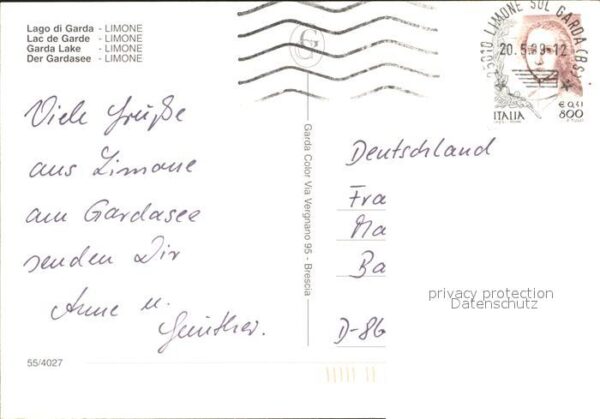 Lago di Garda - LIMONE
Lac de Garde - LIMONE
Garda Lake - LIMONE
Der Gardasee - LIMONE
Viele Grüße
aus Limone
am Gardasee
senden Dir
Anne u.
Günther.
55/4027
Garda Color Via Vergnano 95 - Brescia
LIMONE SUL GARDA (BS)
20.5.99-12
€ 0,41
ITALIA 800
Deutschland
Fra
Ma
Ba
D-86
privacy protection
Datenschutz